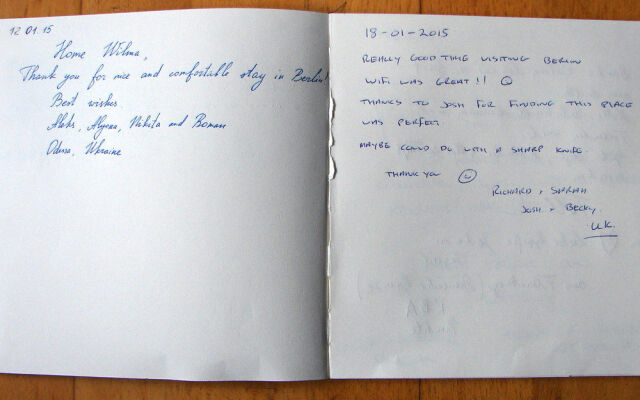 12.01.15
Home Wilma,
Thank you for nice and comfortable stay in Berlin!
Best wishes
Aleks, Alyona, Nikita and Roman
Odessa, Ukraine
18-01-2015
REALLY GOOD TIME VISITING BERLIN
WIFI WAS GREAT!!
THANKS TO JOSH FOR FINDING THIS PLACE
WAS PERFECT.
MAYBE COULD DO WITH A SHARP KNIFE.
THANK YOU
RICHARD + SARAH
JOSH + BECKY.
U.K.